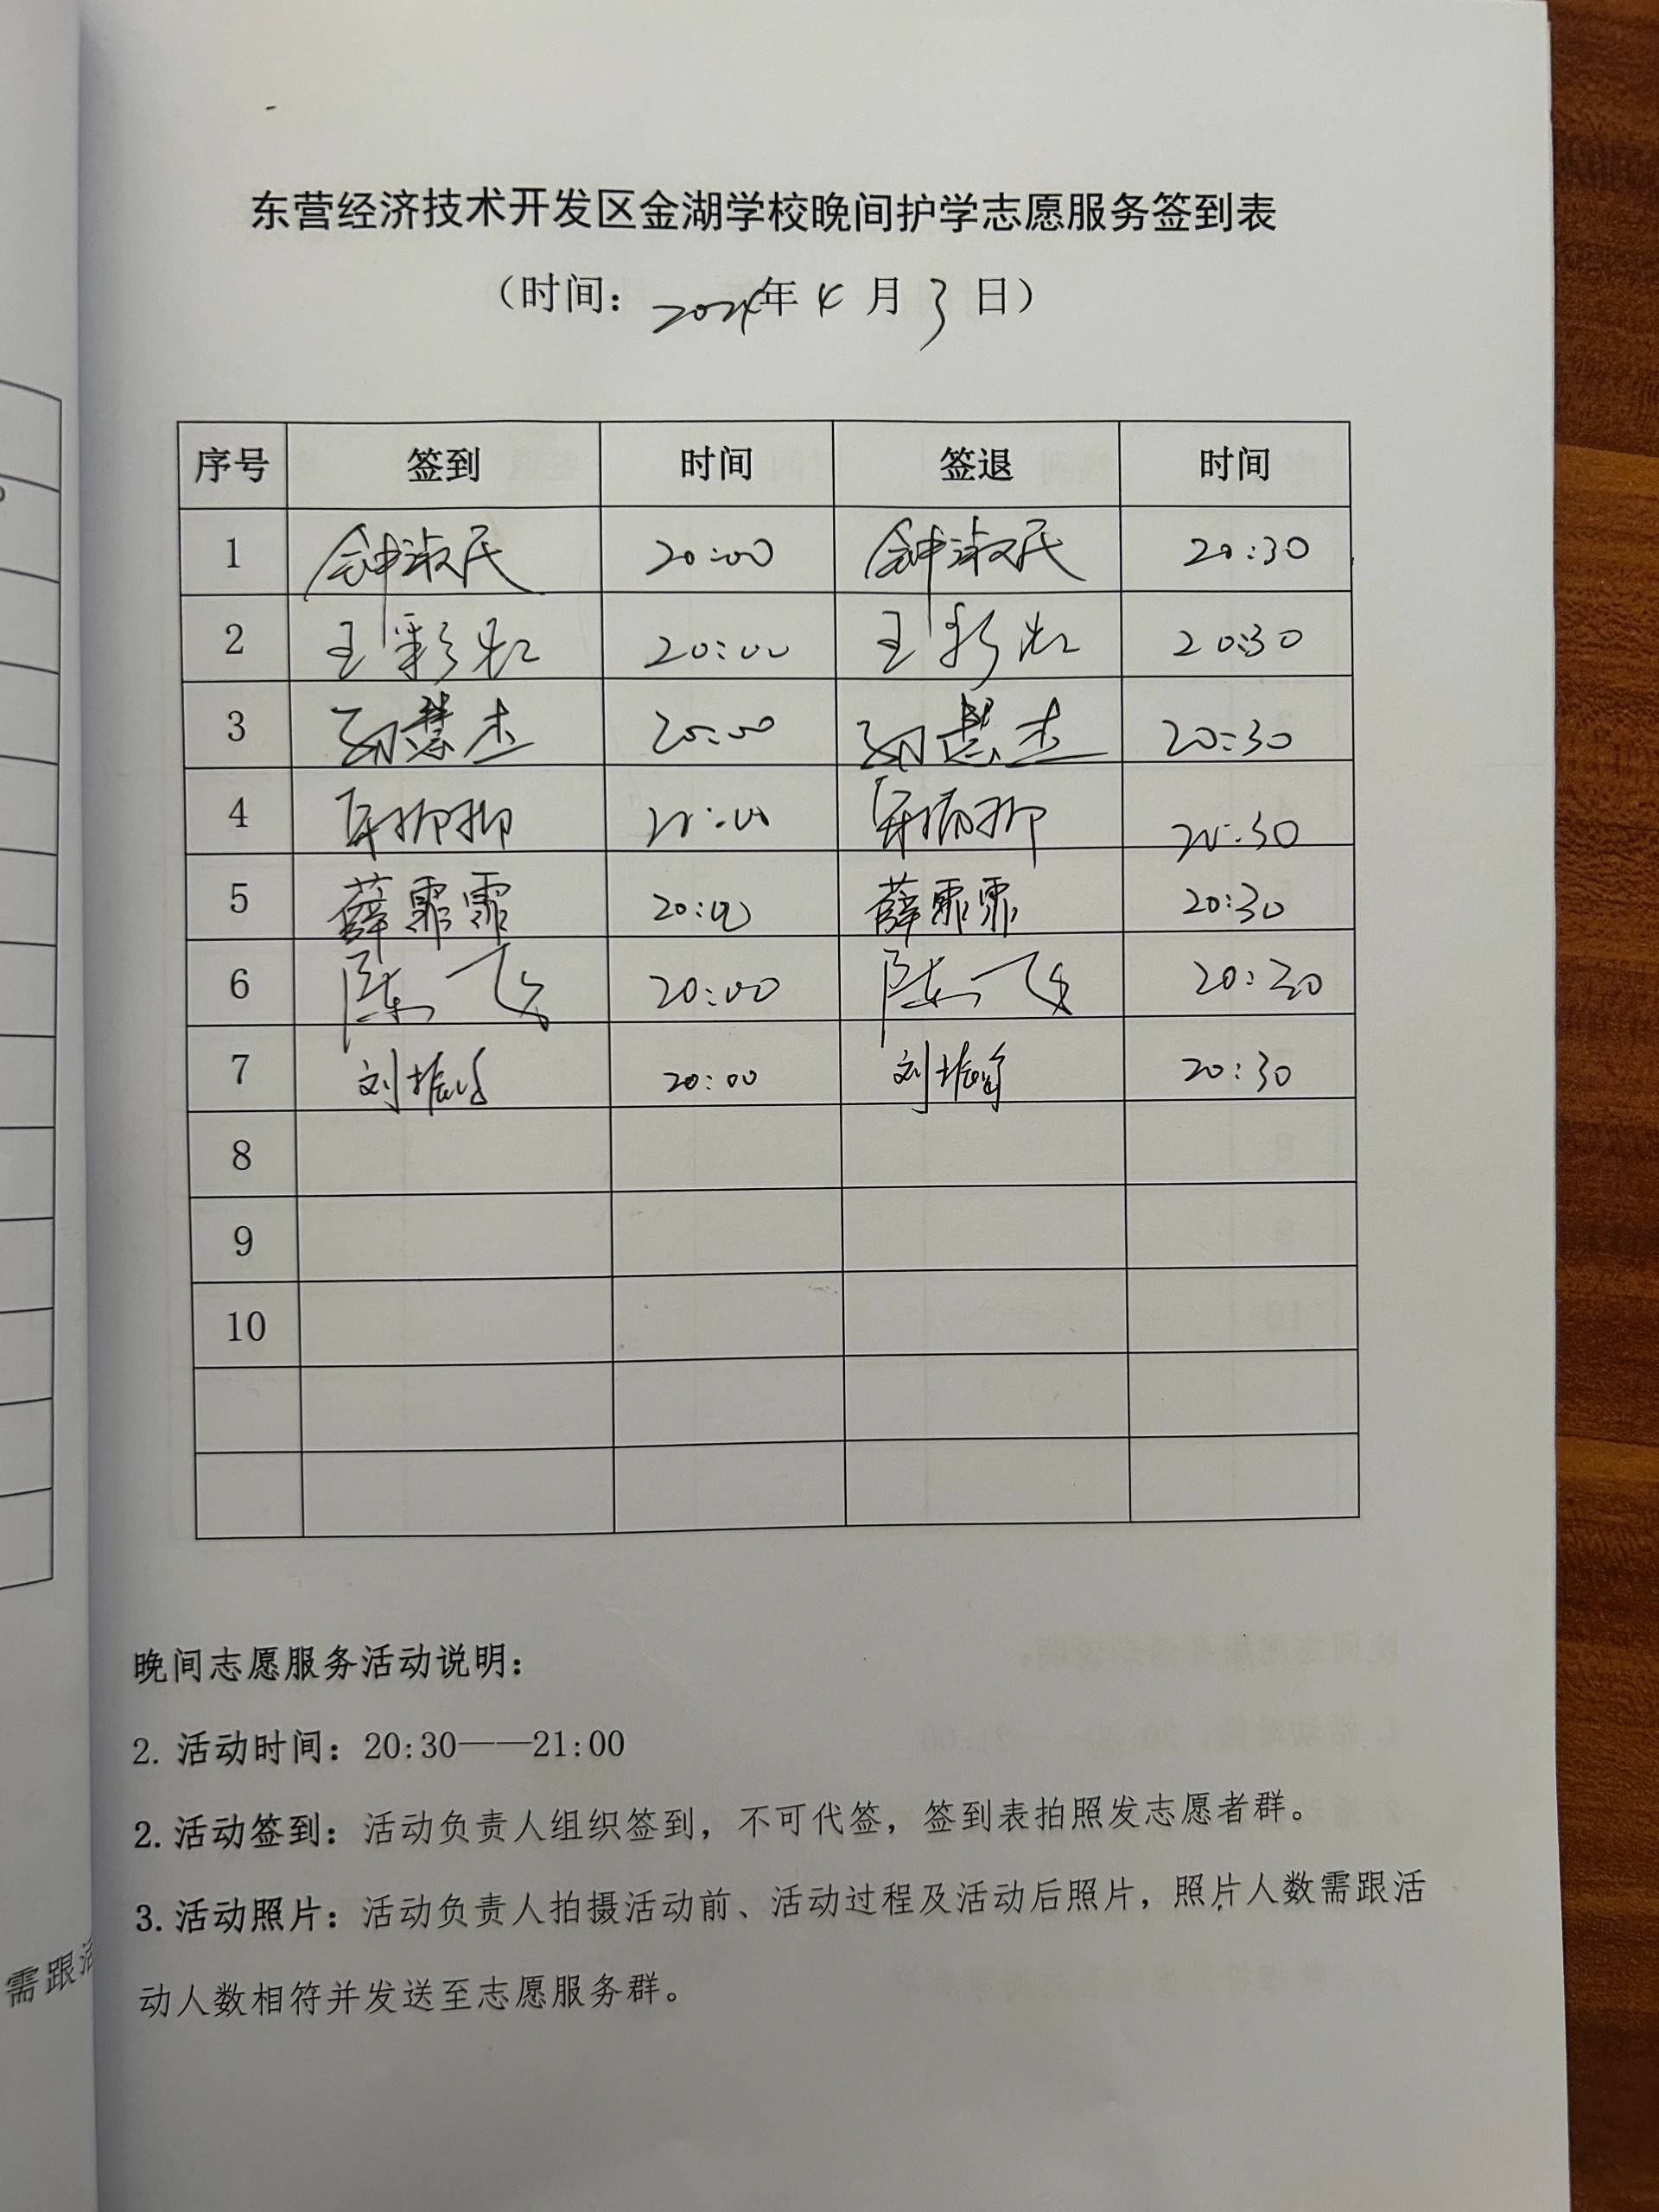 东营经济技术开发区金湖学校晚间护学志愿服务签到表
（时间：2024年4月3日）
序号 签到 时间 签退 时间
1 钟淑民 20:00 钟淑民 20:30
2 王彩虹 20:00 王彩虹 20:30
3 孙慧杰 20:00 孙慧杰 20:30
4 20:00 20:30
5 薛霏霏 20:00 薛霏霏 20:30
6 陈飞 20:00 陈飞 20:30
7 刘振 20:00 刘振 20:30
8
9
10
晚间志愿服务活动说明：
2. 活动时间：20:30——21:00
2. 活动签到：活动负责人组织签到，不可代签，签到表拍照发志愿者群。
3. 活动照片：活动负责人拍摄活动前、活动过程及活动后照片，照片人数需跟活
动人数相符并发送至志愿服务群。
需跟活